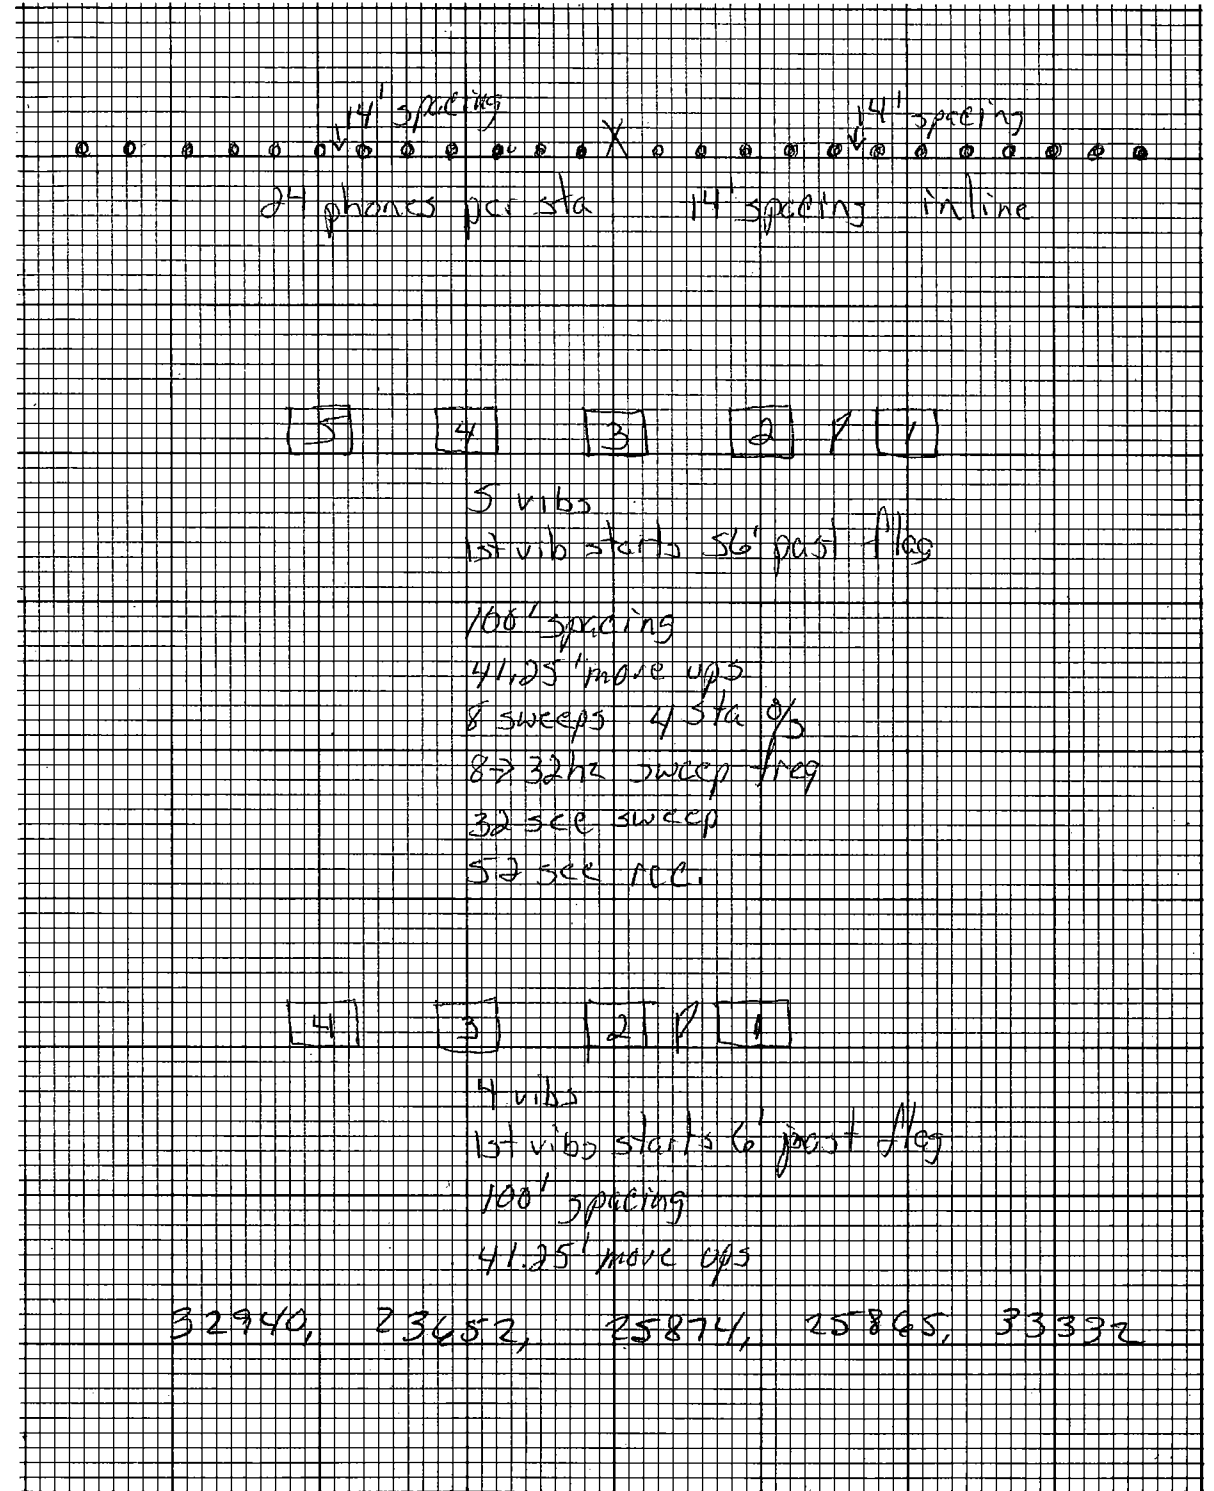 14' spacing 14' spacing
X
24 phones per sta 14' spacing inline
5 4 3 2 1
5 vibs
1st vib starts 56' past flag
100' spacing
41.25' move ups
8 sweeps 4 sta %
8→32hz sweep freq
32 sec sweep
52 sec rec.
4 3 2 1
4 vibs
1st vibs starts 6' past flag
100' spacing
41.25' move ups
32940, 23652, 25874, 25865, 33332